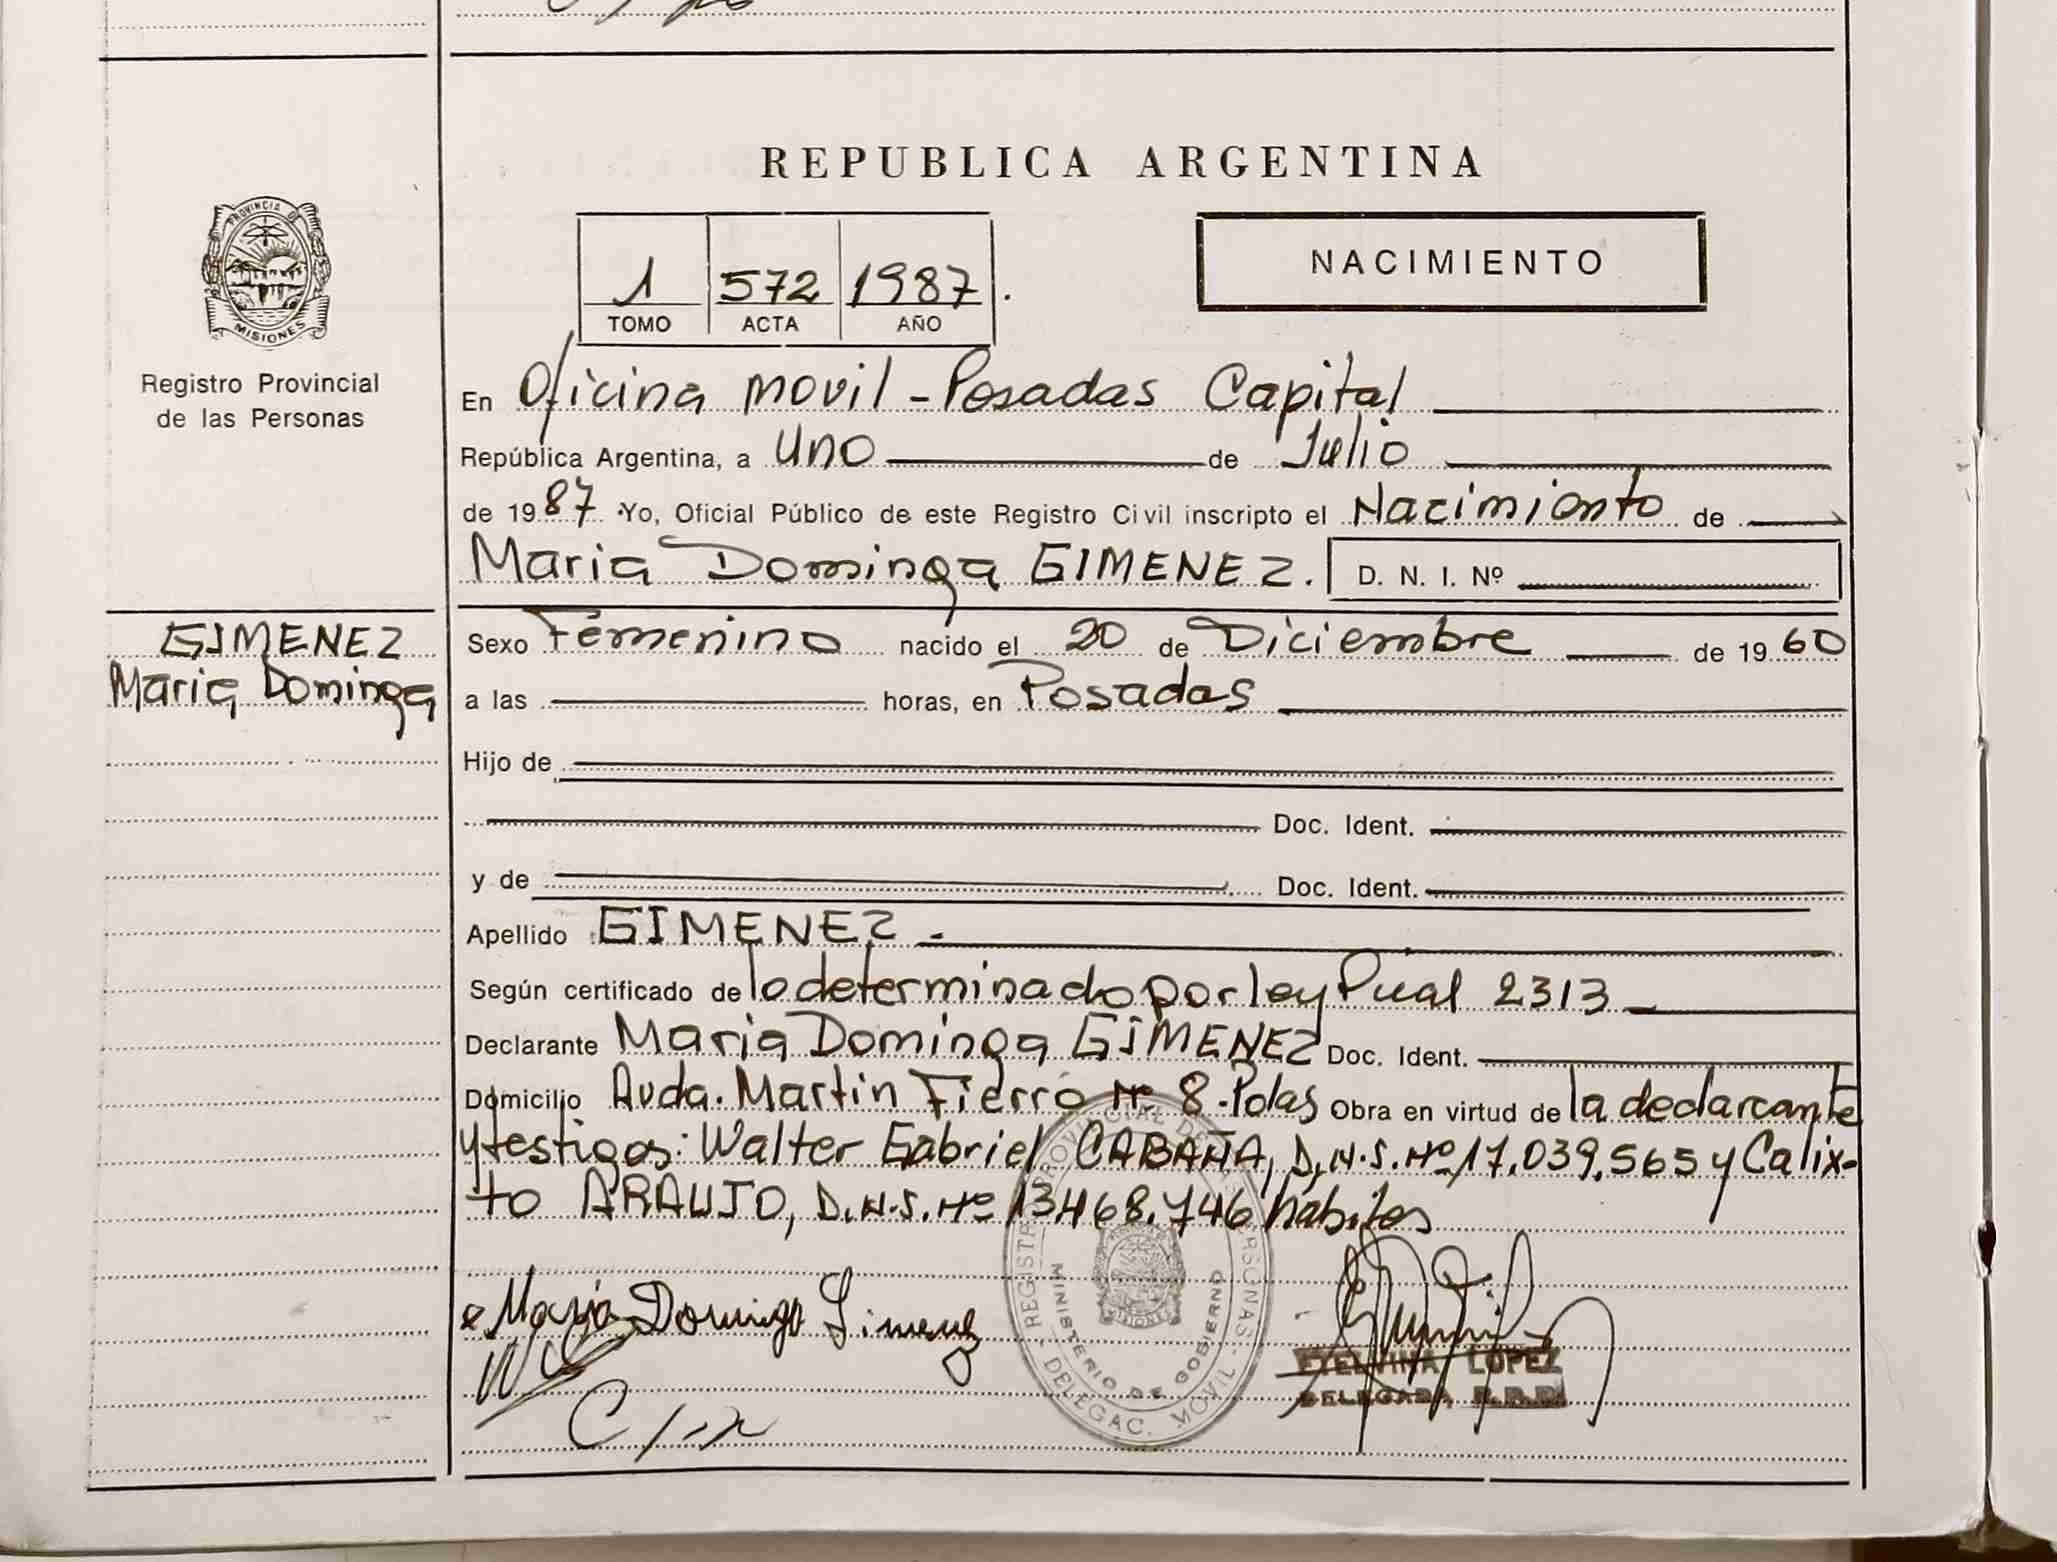 REPUBLICA ARGENTINA
PROVINCIA DE
MISIONES
Registro Provincial
de las Personas
1 572 1987
TOMO ACTA AÑO
NACIMIENTO
En Oficina movil - Posadas Capital
República Argentina, a uno de Julio
de 1987. Yo, Oficial Público de este Registro Civil inscripto el Nacimiento de
Maria Dominga GIMENEZ. D. N. I. Nº
GIMENEZ
Maria Dominga
Sexo Femenino nacido el 20 de Diciembre de 1960
a las horas, en Posadas
Hijo de
Doc. Ident.
y de Doc. Ident.
Apellido GIMENEZ.
Según certificado de lo determinado por ley Pcial 2313
Declarante Maria Dominga GIMENEZ Doc. Ident.
Domicilio Avda. Martin Fierro Nº 8-Pdas Obra en virtud de la declarante
y testigos: Walter Gabriel CABAÑA, D.N.I. Nº 17.039.565 y Calix-
to ARAUJO, D.N.I. Nº 13468.746 habiles
Maria Dominga Gimenez
REGISTRO PROVINCIAL DE LAS PERSONAS
MINISTERIO DE GOBIERNO
DELEGAC. MOVIL
LOPEZ
DELEGADA